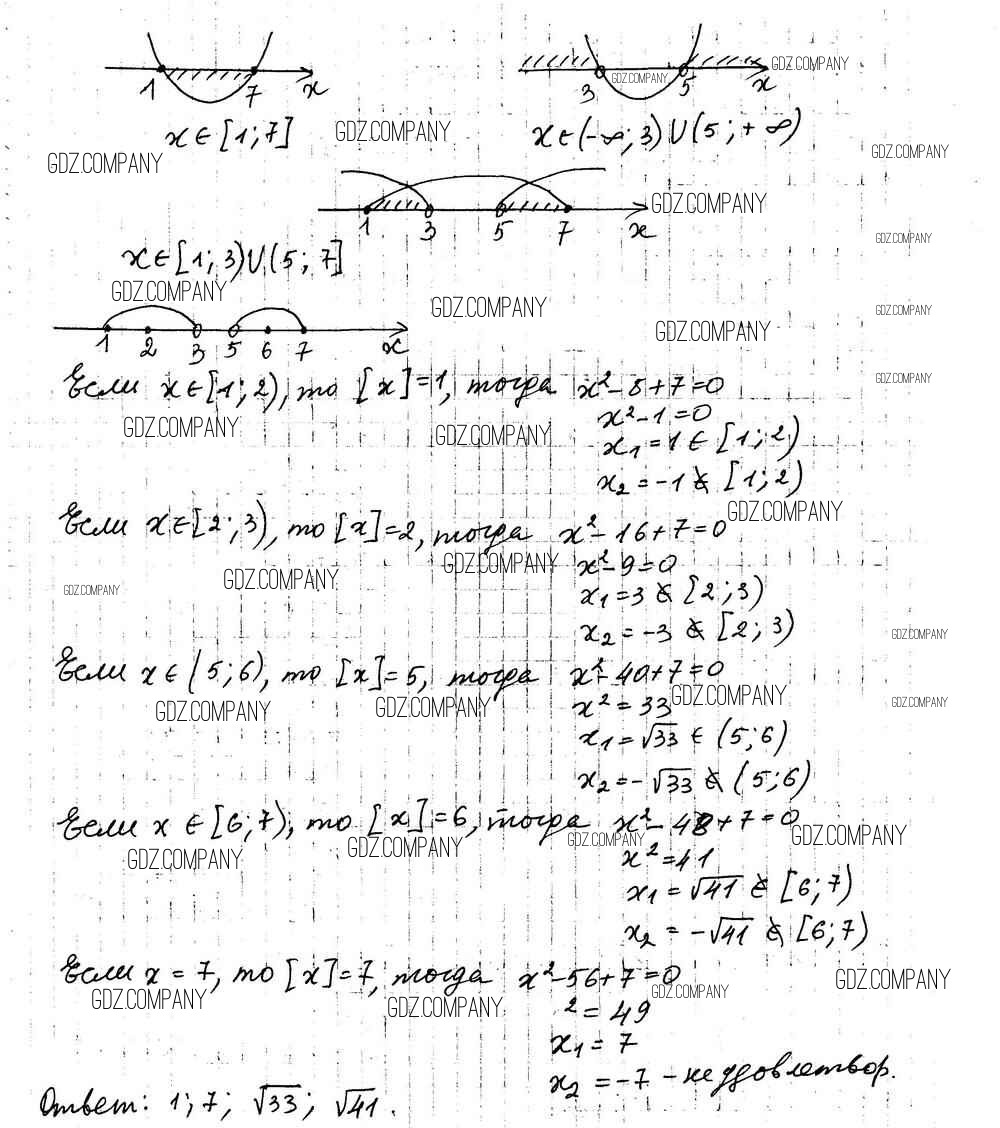 1 7 x 3 GDZ.COMPANY 5 x GDZ.COMPANY
x ∈ [1; 7] GDZ.COMPANY x ∈ (-∞; 3) ∪ (5; +∞)
GDZ.COMPANY GDZ.COMPANY
1 3 5 7 x GDZ.COMPANY
GDZ.COMPANY
x ∈ [1; 3) ∪ (5; 7]
GDZ.COMPANY GDZ.COMPANY GDZ.COMPANY
1 2 3 5 6 7 x GDZ.COMPANY
Если x ∈ [1; 2), то [x] = 1, тогда x² - 8 + 7 = 0
GDZ.COMPANY
x² - 1 = 0
GDZ.COMPANY GDZ.COMPANY x₁ = 1 ∈ [1; 2)
x₂ = -1 ∉ [1; 2)
GDZ.COMPANY
Если x ∈ [2; 3), то [x] = 2, тогда x² - 16 + 7 = 0
GDZ.COMPANY x² - 9 = 0
GDZ.COMPANY GDZ.COMPANY x₁ = 3 ∉ [2; 3)
x₂ = -3 ∉ [2; 3) GDZ.COMPANY
Если x ∈ (5; 6), то [x] = 5, тогда x² - 40 + 7 = 0
GDZ.COMPANY GDZ.COMPANY x² = 33 GDZ.COMPANY GDZ.COMPANY
x₁ = √33 ∈ (5; 6)
x₂ = -√33 ∉ (5; 6)
Если x ∈ [6; 7), то [x] = 6, тогда x² - 48 + 7 = 0
GDZ.COMPANY GDZ.COMPANY GDZ.COMPANY GDZ.COMPANY
x² = 41
x₁ = √41 ∈ [6; 7)
x₂ = -√41 ∉ [6; 7)
Если x = 7, то [x] = 7, тогда x² - 56 + 7 = 0
GDZ.COMPANY GDZ.COMPANY GDZ.COMPANY GDZ.COMPANY
² = 49
x₁ = 7
x₂ = -7 - не удовлетвор.
Ответ: 1; 7; √33; √41.